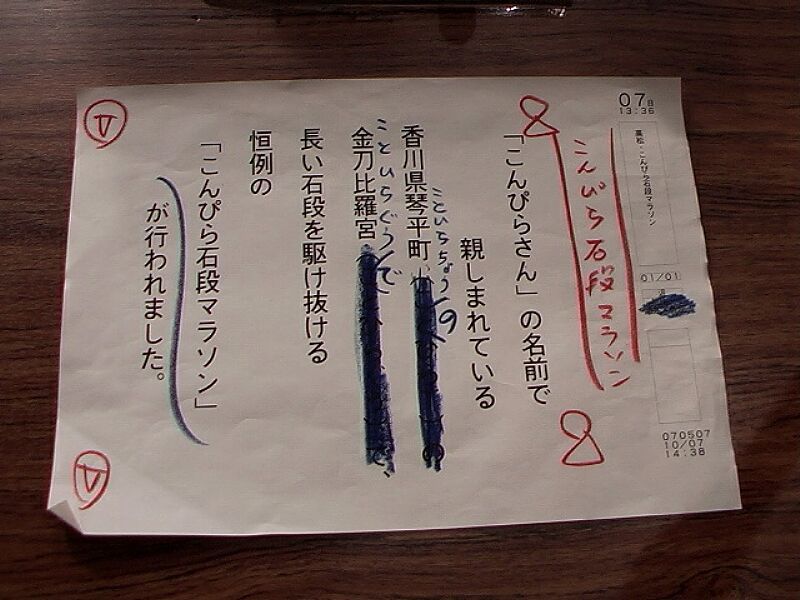 07日
13:36
高松・こんぴら石段マラソン
01/01
070507
10/07
14:38
こんぴら石段マラソン
「こんぴらさん」の名前で
親しまれている
香川県琴平町の
ことひらちょう
金刀比羅宮で
ことひらぐう
長い石段を駆け抜ける
恒例の
「こんぴら石段マラソン」
が行われました。
V
V